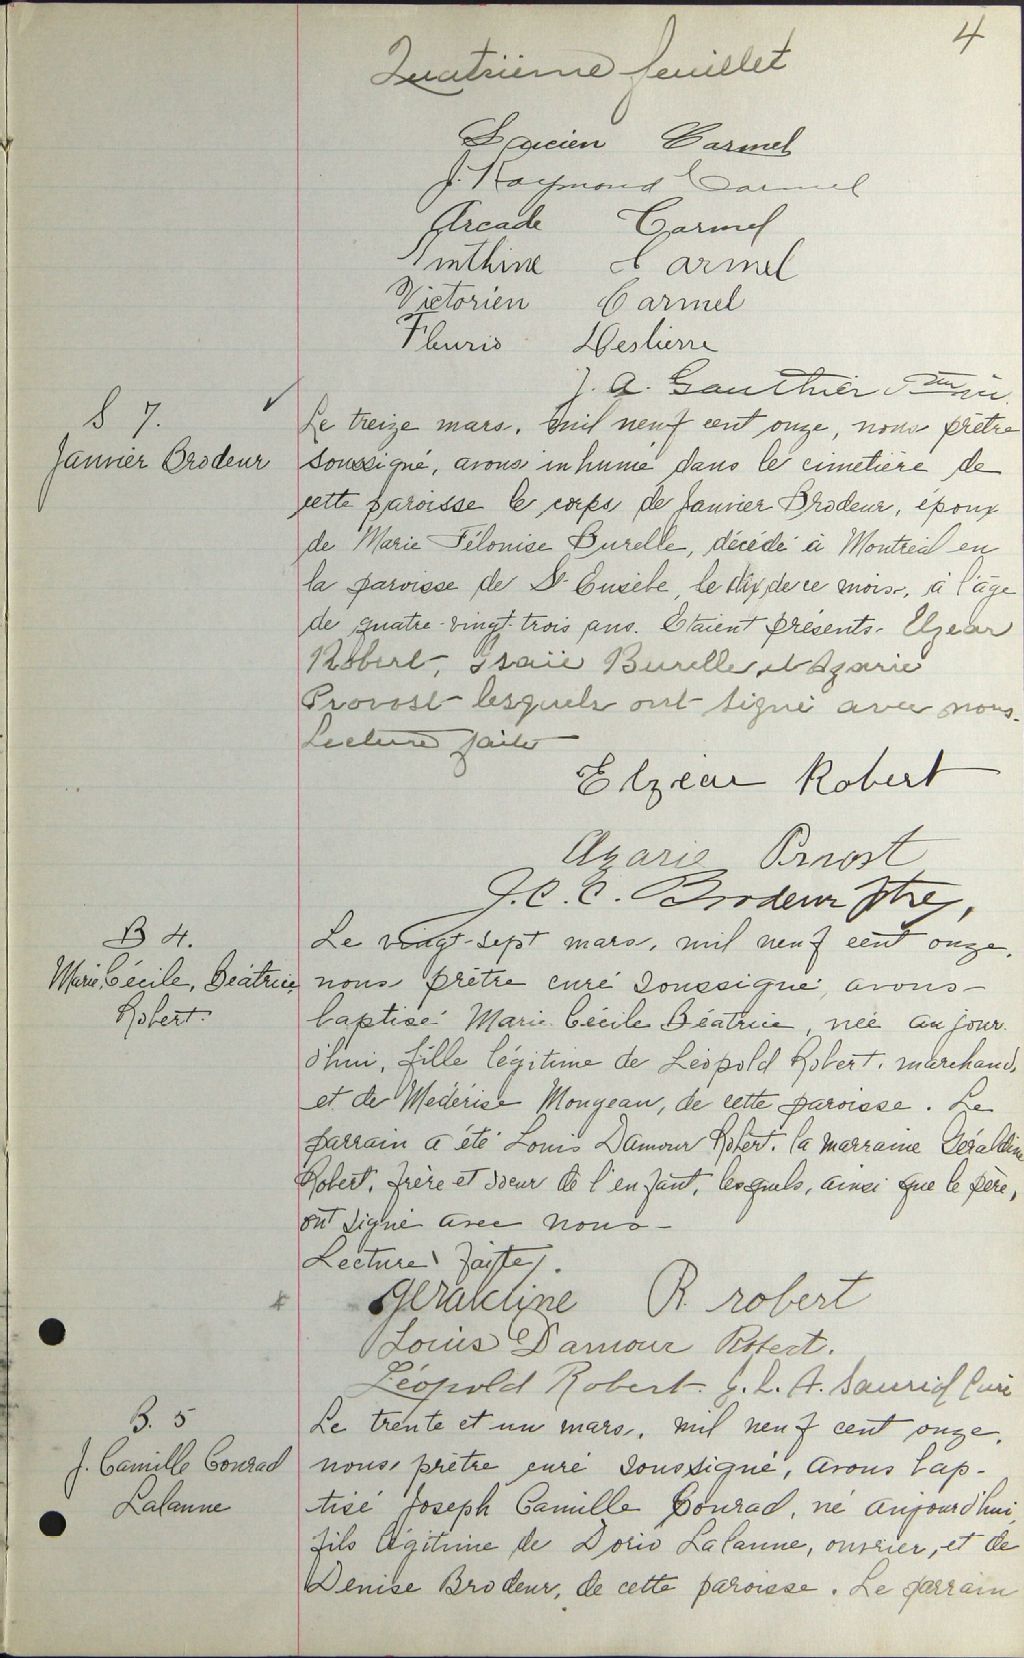 4
Quatrième feuillet
Lucien Carmel
J. Raymond Carmel
Arcade Carmel
Carmel
Victorien Carmel
J. A. Gauthier
S 7.
Janvier Brodeur
Le treize mars, mil neuf cent onze, nous prêtre
soussigné, avons inhumé dans le cimetière de
cette paroisse le corps de Janvier Brodeur, époux
de Marie Félonise Burelle, décédé à Montréal en
la paroisse de St Eusèbe, le dix de ce mois, à l'âge
de quatre-vingt-trois ans. Etaient présents. Elzear
Robert, Isaïe Burelle, et Azarie
Provost lesquels ont signé avec nous.
Lecture faite
Elzéar Robert
Azarie Provost
J. C. C. Brodeur Ptre,
B 4.
Marie, Cécile, Béatrice
Robert.
Le vingt-sept mars, mil neuf cent onze,
nous prêtre curé soussigné, avons
baptisé Marie Cécile Béatrice, née aujour
d'hui, fille légitime de Léopold Robert, marchand,
et de Médérise Mongeau, de cette paroisse. Le
parrain a été Louis Damour Robert, la marraine Géraldine
Robert, frère et soeur de l'enfant, lesquels, ainsi que le père,
ont signé avec nous
Lecture faite.
Geraldine R. robert
Louis Damour Robert.
Léopold Robert J. L. A. Curé
B. 5
J. Camille Conrad
Lalanne
Le trente et un mars, mil neuf cent onze,
nous prêtre curé soussigné, avons bap-
tisé Joseph Camille Conrad, né aujourd'hui,
fils légitime de Dorio Lalanne, ouvrier, et de
Denise Brodeur, de cette paroisse. Le parrain